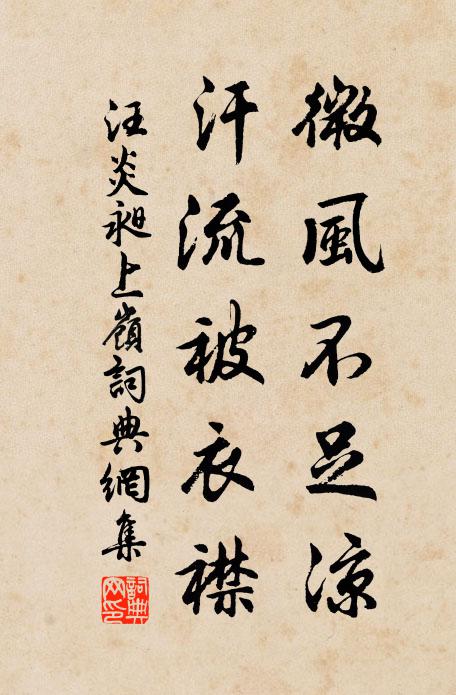 微風不足涼
汗流被衣襟
汪炎昶上嶺詞典網集
詞典
网印